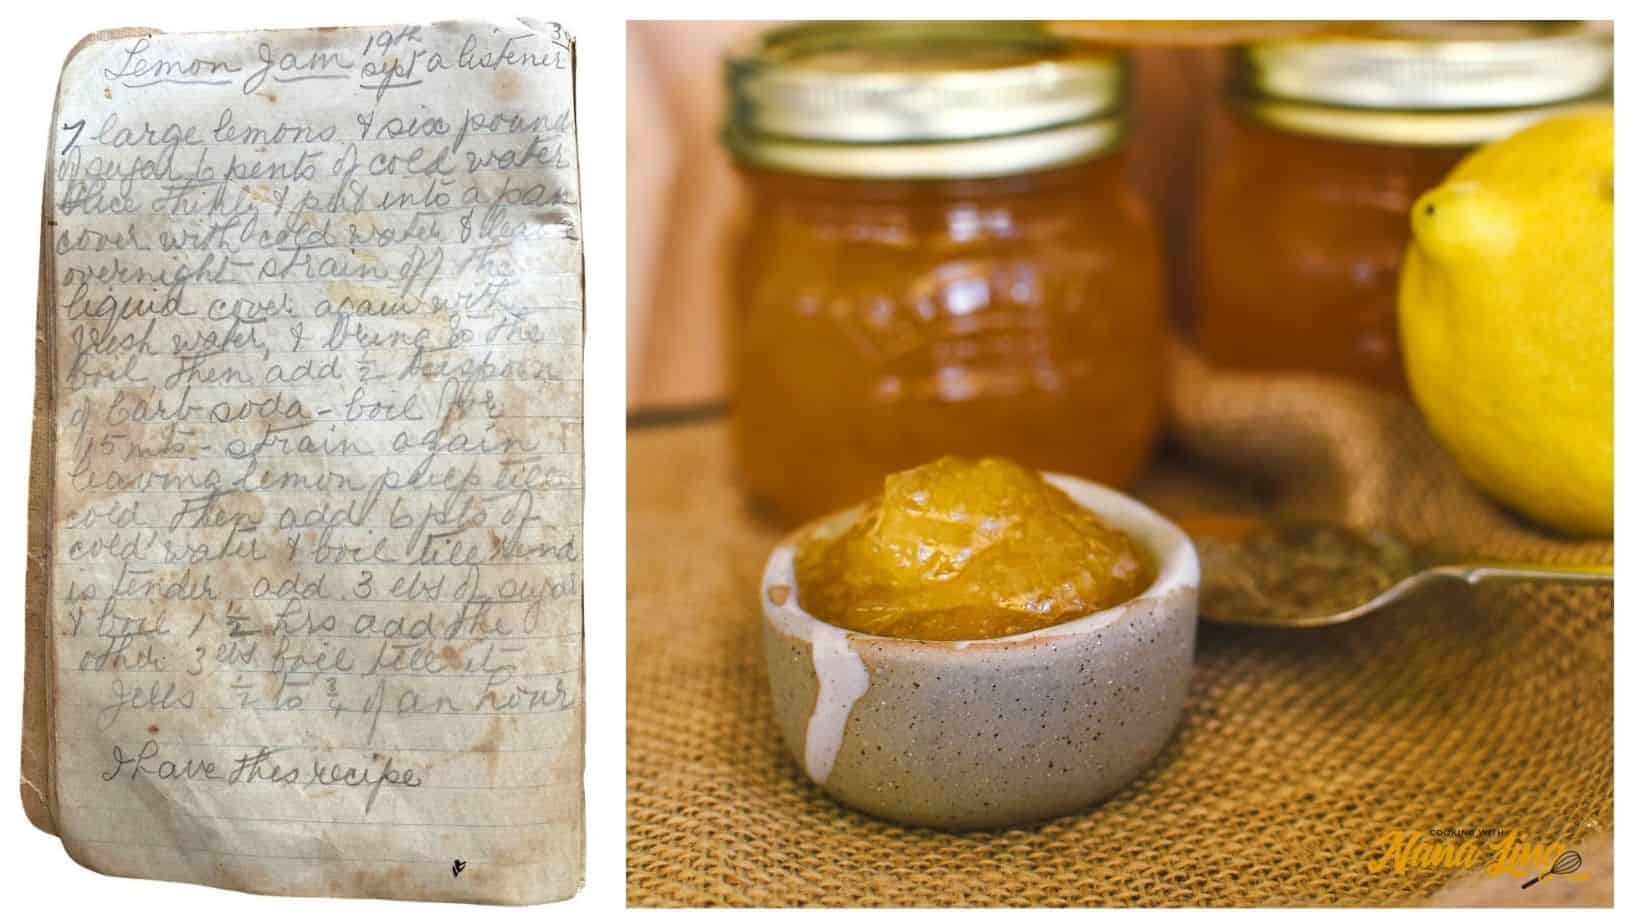 Lemon Jam 19th Sept a listener
3
7 large lemons & six pound
of sugar 6 pents of cold water
Slice thinly & put into a pan
cover with cold water & leave
overnight - strain off the
liquid cover again with
fresh water, & bring to the
boil, then add ½ teaspoon
of Carb soda - boil for
15 mts - strain again
leaving lemon pulp till
cold, then add 6 pts of
cold water & boil till rind
is tender add 3 lbs of sugar
& boil 1 ½ hrs add the
other 3 lbs boil till it
Jells ½ to ¾ of an hour
I have this recipe
COOKING WITH
Nana Ling